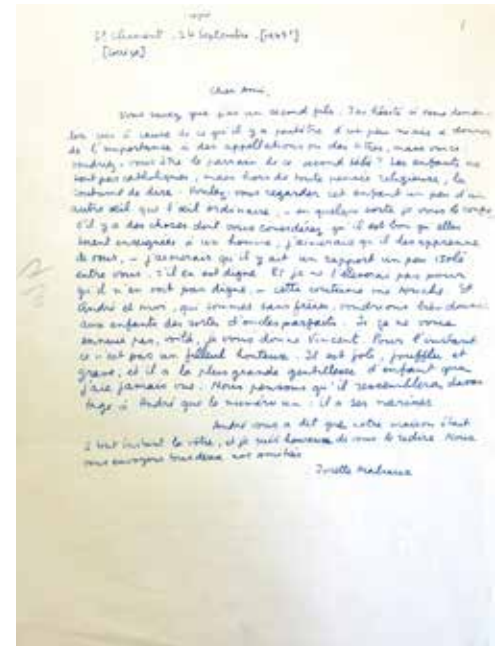 copie
1
St Chamant. 24 Septembre. [1943]
[Corrèze]
Cher Ami,
Vous savez que j'ai un second fils. J'ai hésité à vous deman-
der ceci à cause de ce qu'il y a peut être d'un peu niais à donner
de l'importance à des appellations ou des titres, mais vous
voudrez-vous être le parrain de ce second bébé ? Les enfants ne
sont pas catholiques, mais hors de toute pensée religieuse, la
coutume de dire. Voulez vous regarder cet enfant un peu d'un
autre œil que l'œil ordinaire, - en quelque sorte je vous le
s'il y a des choses dont vous considérez qu'il est bon qu'elles
soient enseignées à un homme, j'aimerais qu'il les apprenne
de vous, - j'aimerais qu'il y ait un rapport un peu isolé
entre vous. S'il en est digne. Et je ne l'élèverai pas pour
qu'il n'en soit pas digne. - cette coutume me touche. Et
André et moi, qui sommes sans frères, voudrions bien donner
aux enfants des sortes d'oncles parfaits. Si ça ne vous
ennuie pas, voilà, je vous donne Vincent. Pour l'instant
ce n'est pas un filleul honteux. Il est joli, joufflu et
grave, et il a la plus grande gentillesse d'enfant que
j'aie jamais vue. Nous pensons qu'il ressemblera davan
tage à André que le numéro un : il a ses narines.
André vous a dit que notre maison était
à tout instant la vôtre, et je suis heureuse de vous le redire. Nous
vous envoyons tous deux nos amitiés
Josette Malraux